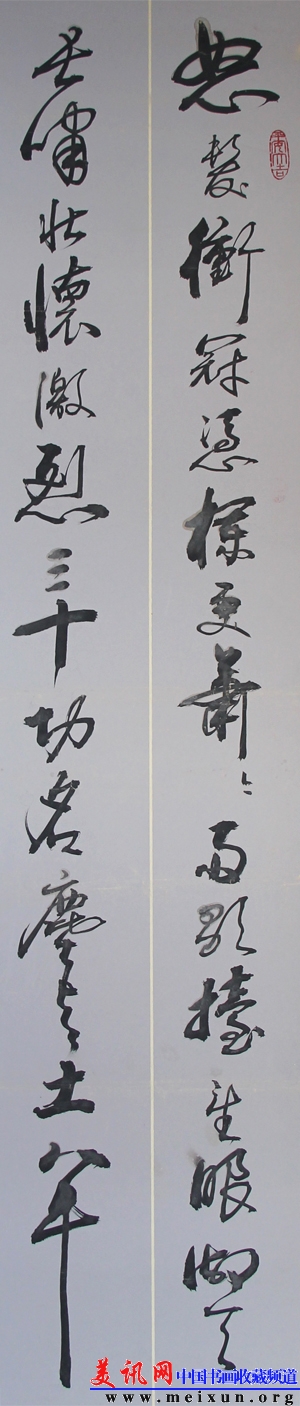 怒髮衝冠憑欄更蕭々雨歇擡望眼仰天
長嘯壯懷激烈三十功名塵與土八千
美讯网 中国书画收藏频道
www.meixun.org